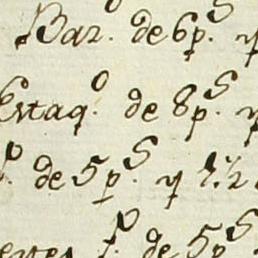 Bar.º de 6 p.s y
Estaq.º de 8 p.s y
de 5 p.s y 1½
de 5 p.s